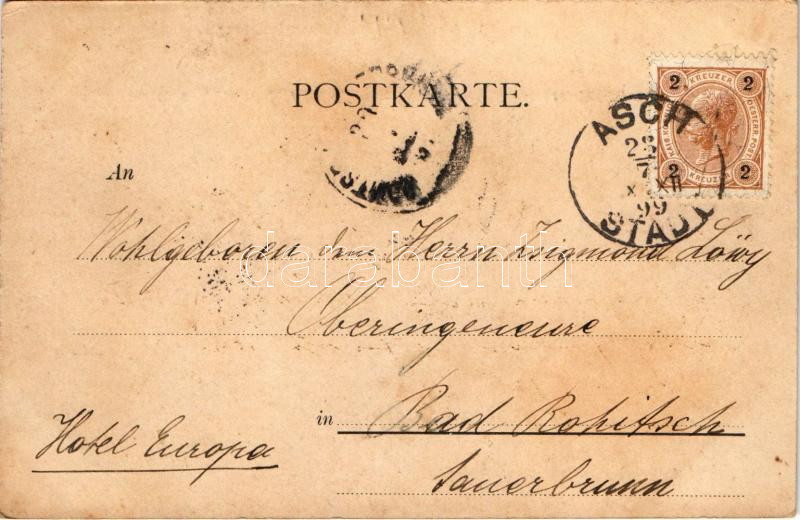 POSTKARTE.
2 KREUZER 2
OESTERR. POST.
2 KREUZER 2
ASCH
STADT
99
An
Wohlgeboren den Herrn Zsigmond Löwy
darabanth
Oberingeneure
in Bad Rohitsch
Hotel Europa
Sauerbrunn